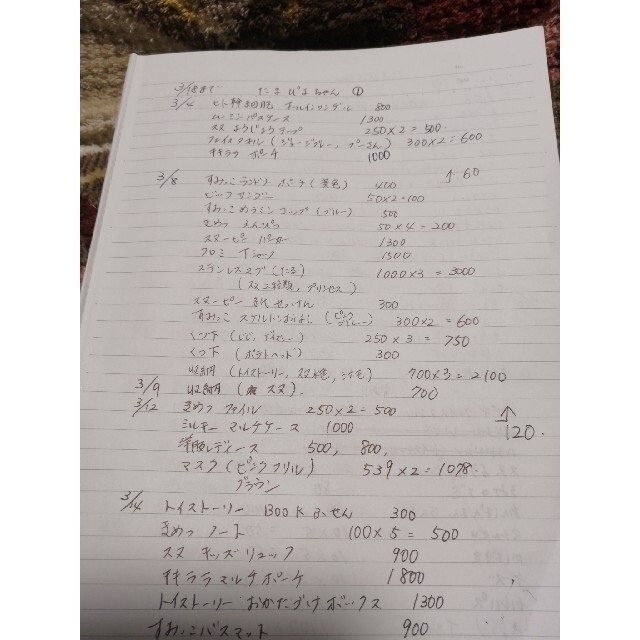 3/18まで たまぴよちゃん ①
3/4 ヒト幹細胞 オールインワンゲル 800
ムーミンバスケース 1300
スヌ ようじょうテープ 250×2=500.
フェイスタオル (ジョージグレー、プーさん) 300×2=600
キキララ ポーチ 1000
↑60
3/8 すみっこランドリー ポーチ (黄色) 400
50×2=100
すみっこめラミンコップ (ブルー) 500
きめつ えんぴつ 50×4=200
スヌーピー パーカー 1300
クロミ Tシャツ 1500
ステンレスマグ (たる) 1000×3=3000
(スヌ2種類、プリンセス)
スヌーピー せっけん 300
すみっこ スケルトン (ピンク 300×2=600
くつ下 250×3=750
くつ下 (ポテトヘッド) 300
収納 (トイストーリー、スヌ 700×3=2100
3/9 収納 スヌ). 700
3/12 きめつ ファイル 250×2=500
↑
120.
ミルキー マルチケース 1000
洋服レディース 500, 800,
マスク (ピンクフリル) 539×2=1078.
ブラウン
3/14 トイストーリー BOOK ふせん 300
きめつ ノート 100×5=500
スヌ キッズリュック 900
キキララマルチポーチ 1800
トイストーリー おかたづけボックス 1300
すみっこバスマット 900